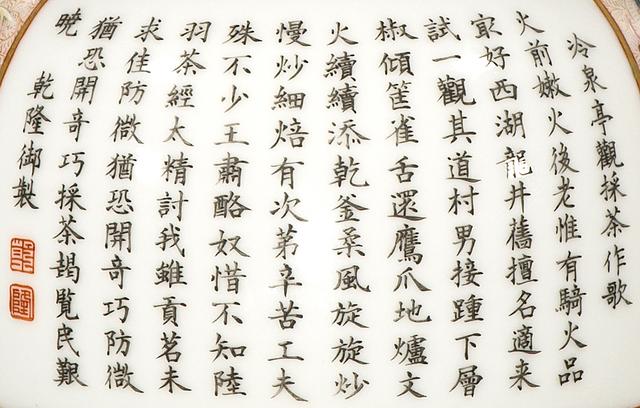 冷泉亭觀採茶作歌
火前嫩火後老惟有騎火品
冣好西湖龍井舊擅名適来
試一觀其道村男接踵下層
椒傾筐雀舌還鷹爪地爐文
火續續添乾釜柔風旋旋炒
慢炒細焙有次第辛苦工夫
殊不少王肅酪奴惜不知陸
羽茶經太精討我雖貢茗未
求佳防微猶恐開竒巧防微
猶恐開竒巧採茶朅覧民艱
曉
乾隆御製
乾
隆